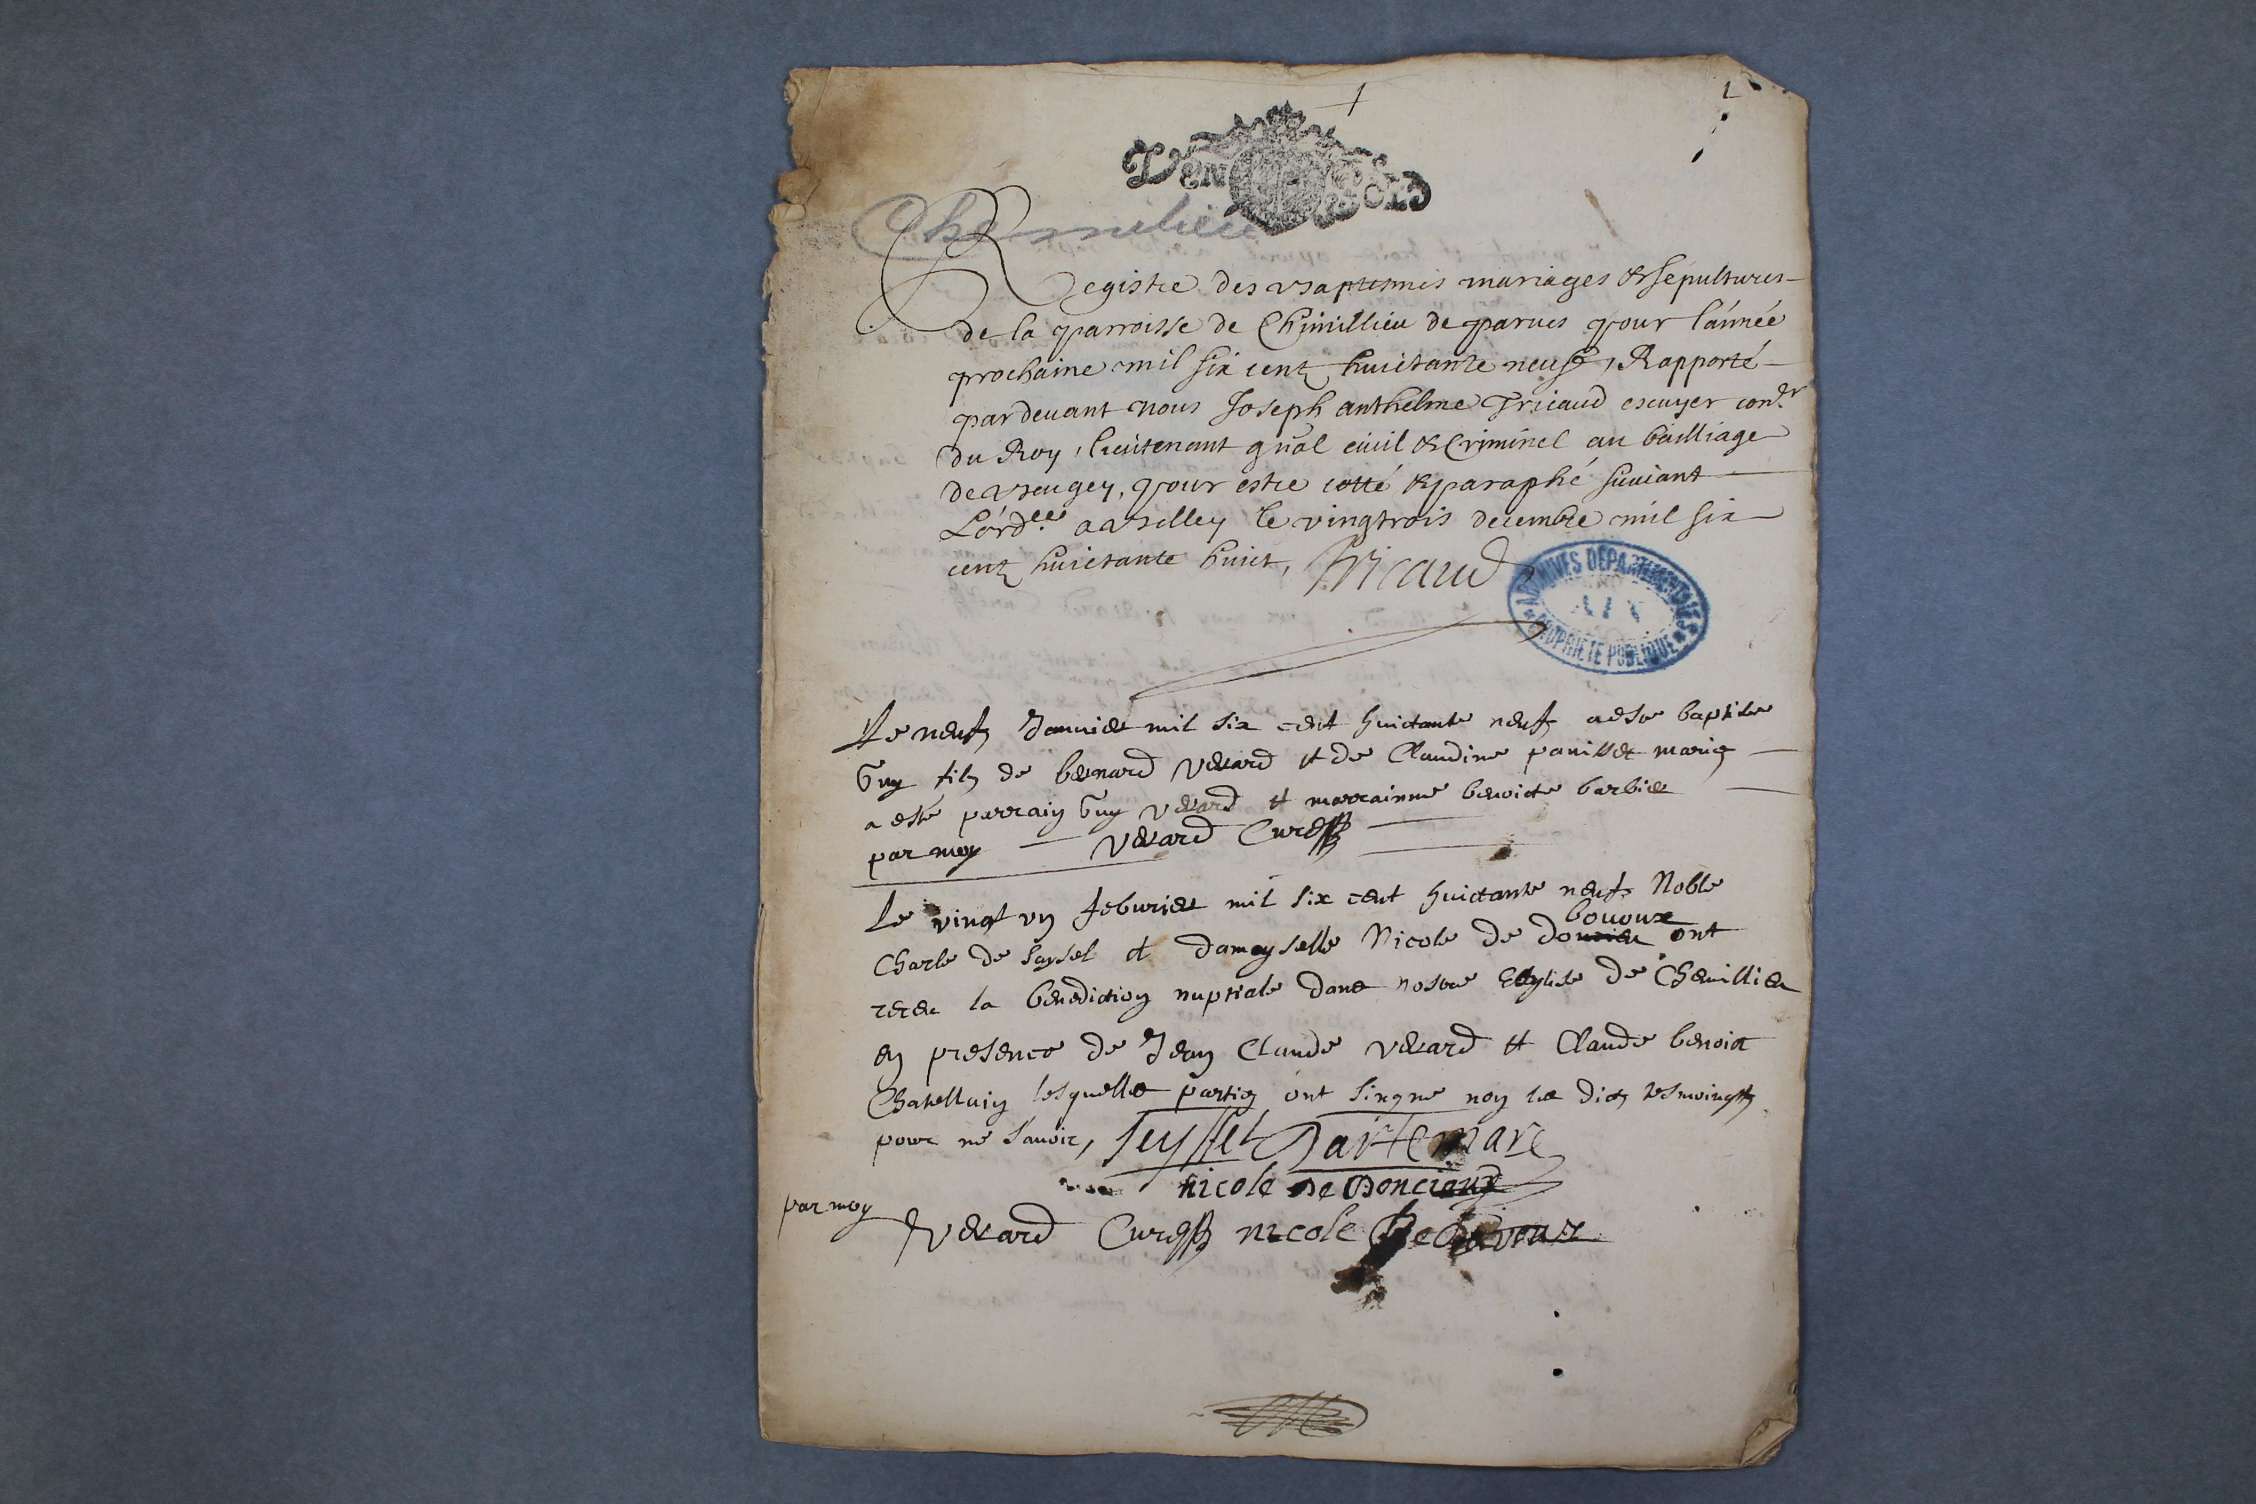 1
Chemilieu
Registre des baptesmes mariages & sepultures
de la parroisse de Chimillieu de parves pour l'année
prochaine mil six cent huictante neuf, Rapporté
pardevant nous Joseph anthelme Tricaud escuyer con.er
du Roy, lieutenant gñal civil & Criminel au bailliage
de beugey, pour estre cotté & paraphé suivant
L'ord.ce a belley le vingtrois decembre mil six
cent huictante huict, Tricaud
ARCHIVES DEPARTEMENTALES
AIN
PROPRIETE PUBLIQUE
Le neufz Januier mil six cent huictante neufz a este baptise
Guy filz de bernard verard et de Claudine panisset mariez
a esté parrain Guy verard et marrainne benoicte barbier
par moy verard Curé
Le vingt un feburier mil six cent huictante neufz Noble
bououx
Charle de saysel et damoyselle Nicole de ont
receu la benediction nuptiale dans nostre Esglise de Chemillieu
en presence de Jean Claude verard et Claude benoict
Chatellain lesquelles partiez ont singne non les dictz tesmoingtz
pour ne sauoir, seyssel Dartemare
nicole De Donciauz
par moy
verard Curé nicole De bovoux